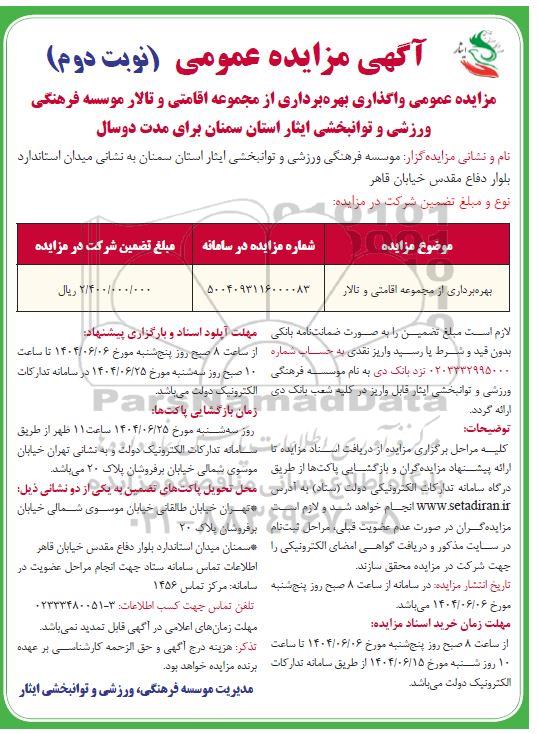 آگهی مزایده عمومی (نوبت دوم)
مزایده عمومی واگذاری بهره‌برداری از مجموعه اقامتی و تالار موسسه فرهنگی
ورزشی و توانبخشی ایثار استان سمنان برای مدت دوسال
نام و نشانی مزایده‌گزار: موسسه فرهنگی ورزشی و توانبخشی ایثار استان سمنان به نشانی میدان استاندارد
بلوار دفاع مقدس خیابان قاهر
نوع و مبلغ تضمین شرکت در مزایده:
موضوع مزایده شماره مزایده در سامانه مبلغ تضمین شرکت در مزایده
بهره‌برداری از مجموعه اقامتی و تالار ۵۰۰۴۰۹۳۱۱۶۰۰۰۰۸۳ ۲/۴۰۰/۰۰۰/۰۰۰ ریال
لازم است مبلغ تضمین را به صورت ضمانت‌نامه بانکی
بدون قید و شرط یا رسید واریز نقدی به حساب شماره
۰۲۰۳۳۳۲۹۹۵۰۰۰ نزد بانک دی به نام موسسه فرهنگی
ورزشی و توانبخشی ایثار قابل واریز در کلیه شعب بانک دی
ارائه گردد.
توضیحات:
کلیه مراحل برگزاری مزایده از دریافت اسناد مزایده تا
ارائه پیشنهاد مزایده‌گران و بازگشایی پاکت‌ها از طریق
درگاه سامانه تدارکات الکترونیکی دولت (ستاد) به آدرس
www.setadiran.ir انجام خواهد شد و لازم است
مزایده‌گران در صورت عدم عضویت قبلی، مراحل ثبت‌نام
در سایت مذکور و دریافت گواهی امضای الکترونیکی را
جهت شرکت در مزایده محقق سازند.
تاریخ انتشار مزایده: در سامانه از ساعت ۸ صبح روز پنج‌شنبه
مورخ ۱۴۰۴/۰۶/۰۶ می‌باشد.
مهلت زمان خرید اسناد مزایده:
از ساعت ۸ صبح روز پنج‌شنبه مورخ ۱۴۰۴/۰۶/۰۶ تا ساعت
۱۰ روز شنبه مورخ ۱۴۰۴/۰۶/۱۵ از طریق سامانه تدارکات
الکترونیک دولت می‌باشد.
مهلت آپلود اسناد و بارگزاری پیشنهاد:
از ساعت ۸ صبح روز پنج‌شنبه مورخ ۱۴۰۴/۰۶/۰۶ تا ساعت
۱۰ صبح روز سه‌شنبه مورخ ۱۴۰۴/۰۶/۲۵ در سامانه تدارکات
الکترونیک دولت می‌باشد.
زمان بازگشایی پاکت‌ها:
روز سه‌شنبه مورخ ۱۴۰۴/۰۶/۲۵ ساعت ۱۱ ظهر از طریق
سامانه تدارکات الکترونیک دولت و به نشانی تهران خیابان
موسوی شمالی خیابان برفروشان پلاک ۲۰ می‌باشد.
محل تحویل پاکت‌های تضمین به یکی از دو نشانی ذیل:
*تهران خیابان طالقانی خیابان موسوی شمالی خیابان
برفروشان پلاک ۲۰
*سمنان میدان استاندارد بلوار دفاع مقدس خیابان قاهر
اطلاعات تماس سامانه ستاد جهت انجام مراحل عضویت در
سامانه: مرکز تماس ۱۴۵۶
تلفن تماس جهت کسب اطلاعات: ۳-۰۲۳۳۳۴۸۰۰۵۱
مهلت زمان‌های اعلامی در آگهی قابل تمدید نمی‌باشد.
تذکر: هزینه درج آگهی و حق الزحمه کارشناسی بر عهده
برنده مزایده خواهد بود.
مدیریت موسسه فرهنگی، ورزشی و توانبخشی ایثار
ParsNamadData